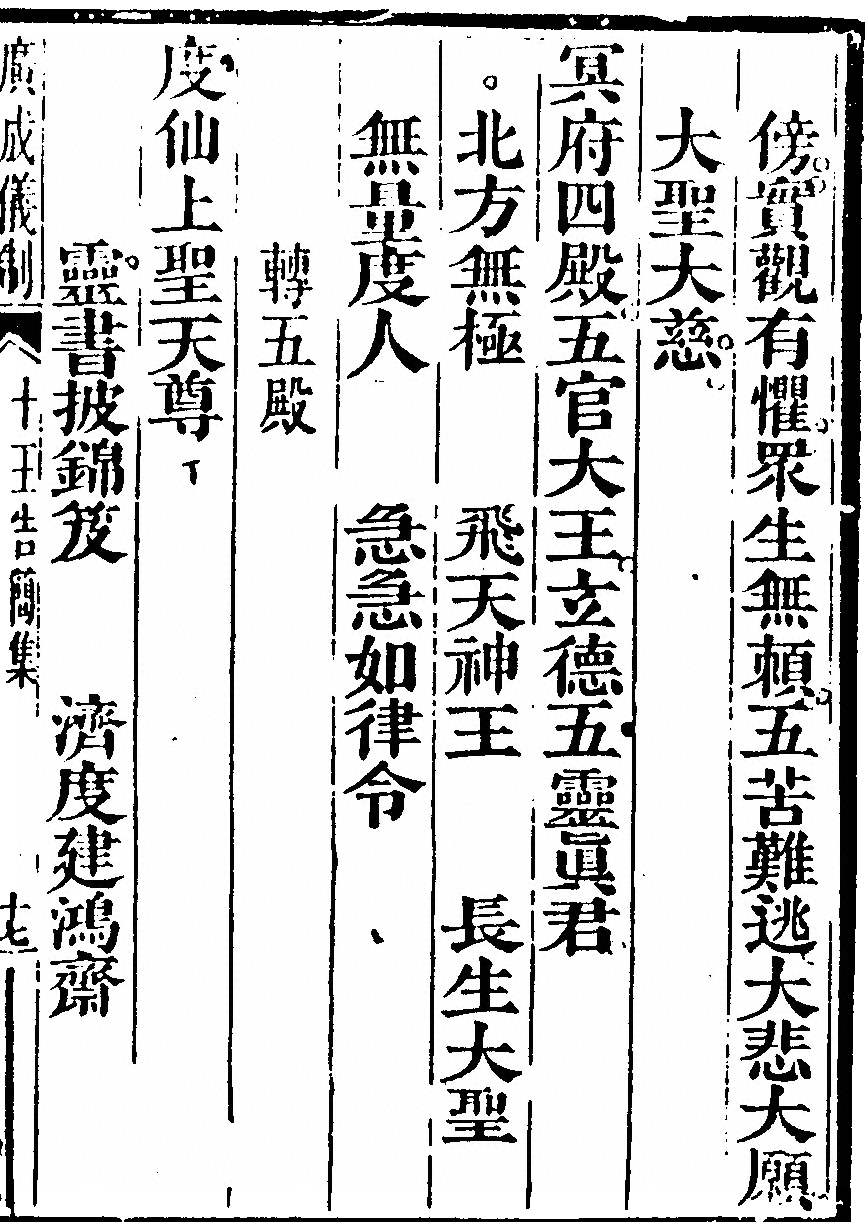 傍實觀有懼眾生無頼五苦難逃大悲大願
大聖大慈
冥府四殿五官大王立德五靈眞君
北方無極　飛天神王　長生大聖
無量度人　急急如律令
轉五殿
度仙上聖天尊
靈書披錦笈　濟度建鴻齋
廣成儀制　十王告簡集　十七